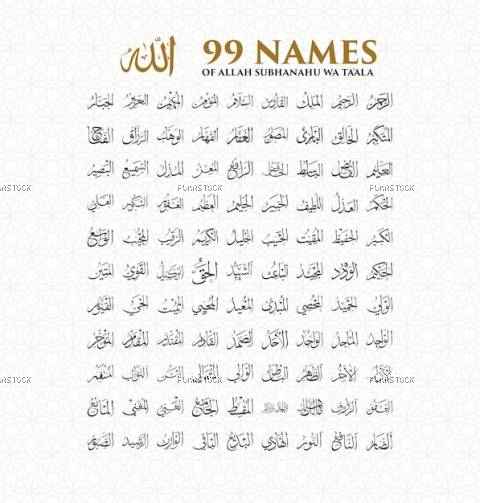 الله
99 NAMES
OF ALLAH SUBHANAHU WA TAALA
الرحمن الرحيم الملك القدوس السلام المؤمن المهيمن العزيز الجبار
المتكبر الخالق البارئ المصور الغفار القهار الوهاب الرزاق الفتاح
العليم القابض الباسط الخافض الرافع المعز المذل السميع البصير
الحكم العدل اللطيف الخبير الحليم العظيم الغفور الشكور العلي
الكبير الحفيظ المقيت الحسيب الجليل الكريم الرقيب المجيب الواسع
الحكيم الودود المجيد الباعث الشهيد الحق الوكيل القوي المتين
الولي الحميد المحصي المبدئ المعيد المحيي المميت الحي القيوم
الواجد الماجد الواحد الأحد الصمد القادر المقتدر المقدم المؤخر
الأول الآخر الظاهر الباطن الوالي المتعالي البر التواب المنتقم
العفو الرؤوف المقسط الجامع الغني المغني المانع
الضار النافع النور الهادي البديع الباقي الوارث الرشيد الصبور